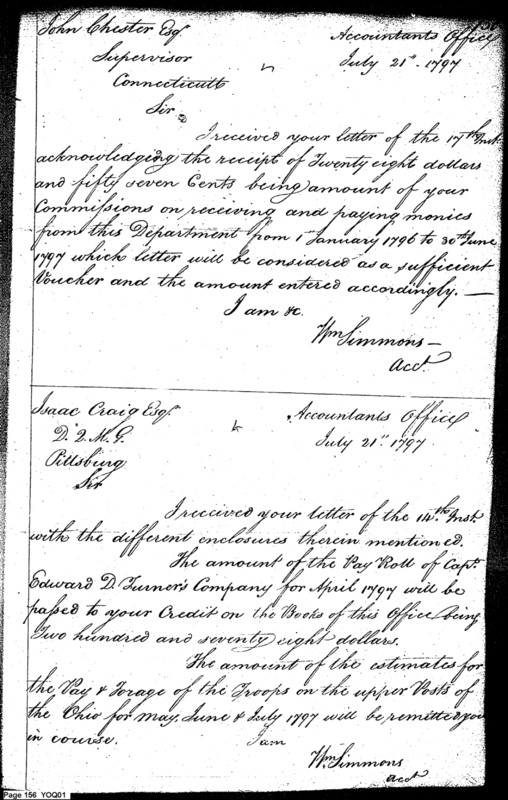 John Chester Esqr. Accountants Office
Supervisor July 21st. 1797
Connecticutt
Sir
I received your letter of the 17th Inst.
acknowledging the receipt of Twenty eight dollars
and fifty seven Cents being amount of your
Commissions on receiving and paying monies
from this Department from 1st January 1796 to 30th June
1797 which letter will be considered as a sufficient
Voucher and the amount entered accordingly. —
I am &c.
Wm Simmons —
Acct.
Isaac Craig Esqr. Accountants Office
D. Q. M. G. July 21st. 1797
Pittsburg
Sir
I received your letter of the 14th. Inst.
with the different enclosures therein mentioned.
The amount of the Pay Roll of Capt.
Edward D. Turner's Company for April 1797 will be
passed to your Credit on the Books of this Office being
Two hundred and seventy eight dollars.
The amount of the estimates for
the Pay & Forage of the Troops on the upper Posts of
the Ohio for May, June & July 1797 will be remitted you
in course. I am
Wm. Simmons
Acct
Page 156 YOQ01